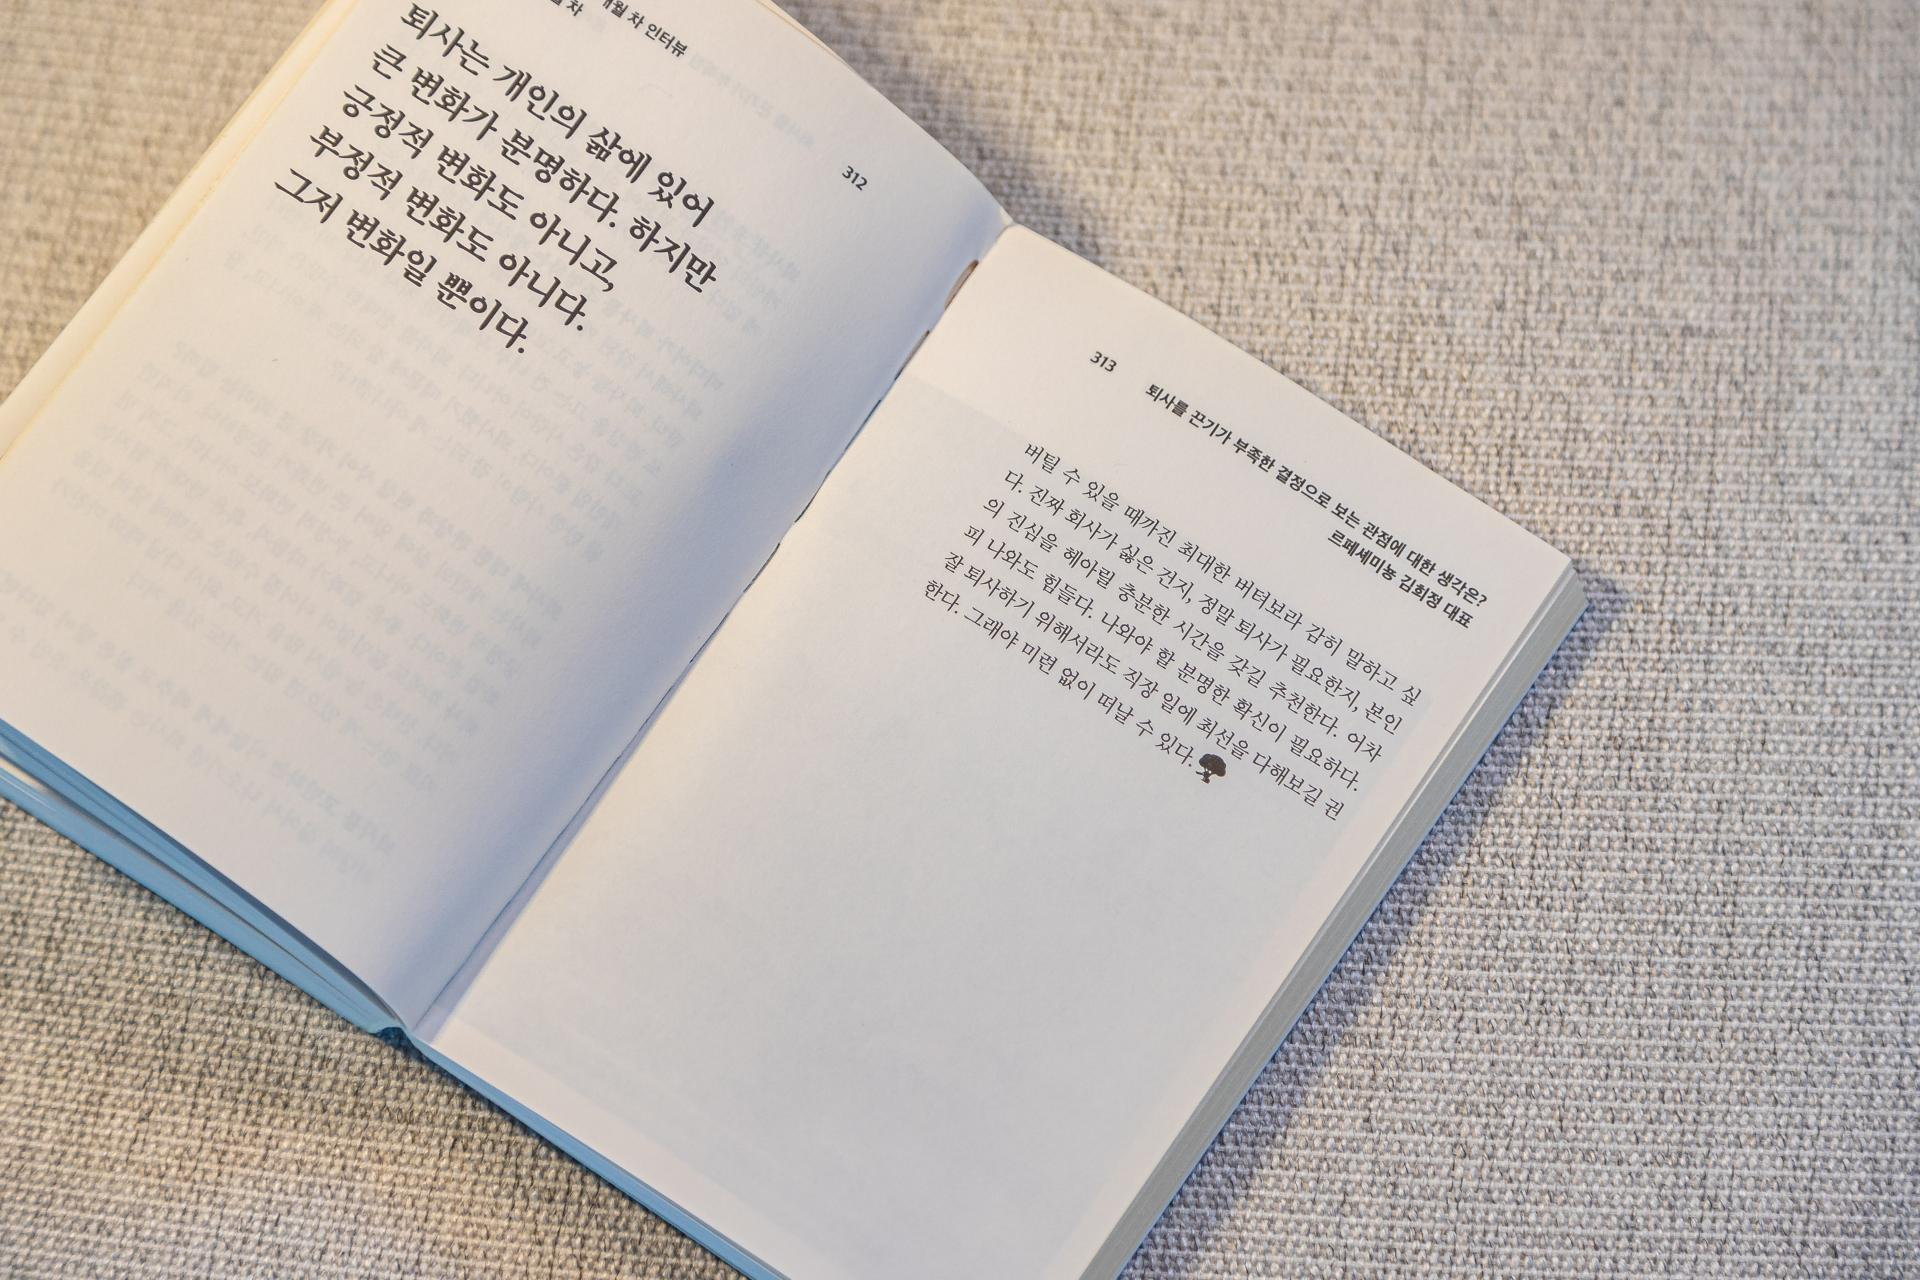 차 인터뷰
312
퇴사는 개인의 삶에 있어
큰 변화가 분명하다. 하지만
긍정적 변화도 아니고,
부정적 변화도 아니다.
그저 변화일 뿐이다.
313
퇴사를 끈기가 부족한 결정으로 보는 관점에 대한 생각은?
르페셰미뇽 김희정 대표
버틸 수 있을 때까진 최대한 버텨보라 감히 말하고 싶
다. 진짜 회사가 싫은 건지, 정말 퇴사가 필요한지, 본인
의 진심을 헤아릴 충분한 시간을 갖길 추천한다. 어차
피 나와도 힘들다. 나와야 할 분명한 확신이 필요하다.
잘 퇴사하기 위해서라도 직장 일에 최선을 다해보길 권
한다. 그래야 미련 없이 떠날 수 있다.